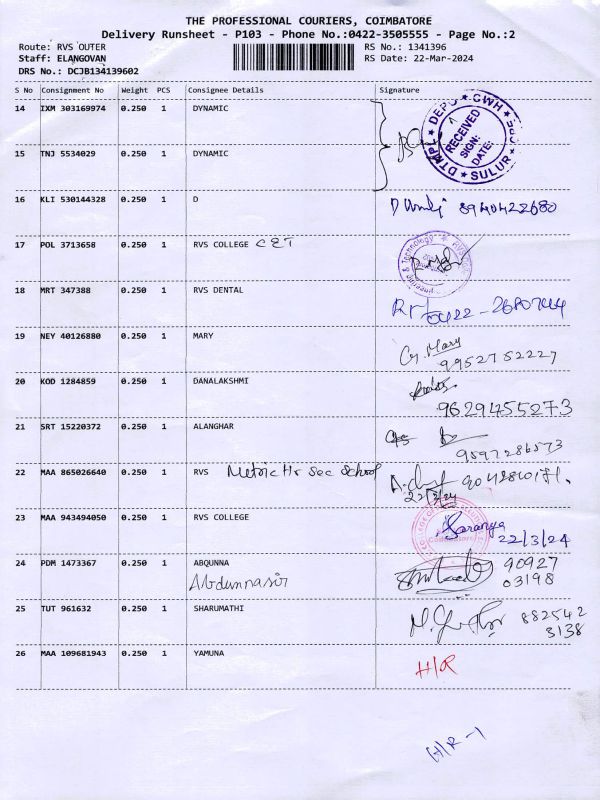 THE PROFESSIONAL COURIERS, COIMBATORE
Delivery Runsheet - P103 - Phone No.:0422-3505555 - Page No.:2
Route: RVS OUTER RS No.: 1341396
Staff: ELANGOVAN RS Date: 22-Mar-2024
DRS No.: DCJB134139602
S No Consignment No Weight PCS Consignee Details Signature
14 IXM 303169974 0.250 1 DYNAMIC
DTMPL DEPO ★ CWH
RECEIVED
SIGN:
DATE:
★ SULUR ★
15 TNJ 5534029 0.250 1 DYNAMIC
16 KLI 530144328 0.250 1 D 8940422680
17 POL 3713658 0.250 1 RVS COLLEGE CET
18 MRT 347388 0.250 1 RVS DENTAL 0422-2680744
19 NEY 40126880 0.250 1 MARY G. Mary
9952752227
20 KOD 1284859 0.250 1 DANALAKSHMI
9629455273
21 SRT 15220372 0.250 1 ALANGHAR
9597286573
22 MAA 865026640 0.250 1 RVS Metric Hr Sec School
22/3/24
23 MAA 943494050 0.250 1 RVS COLLEGE Saranya
22/3/24
24 PDM 1473367 0.250 1 ABQUNNA 90927
Abdunnasir 03198
25 TUT 961632 0.250 1 SHARUMATHI 882542
3138
26 MAA 109681943 0.250 1 YAMUNA H/R
H/R-1